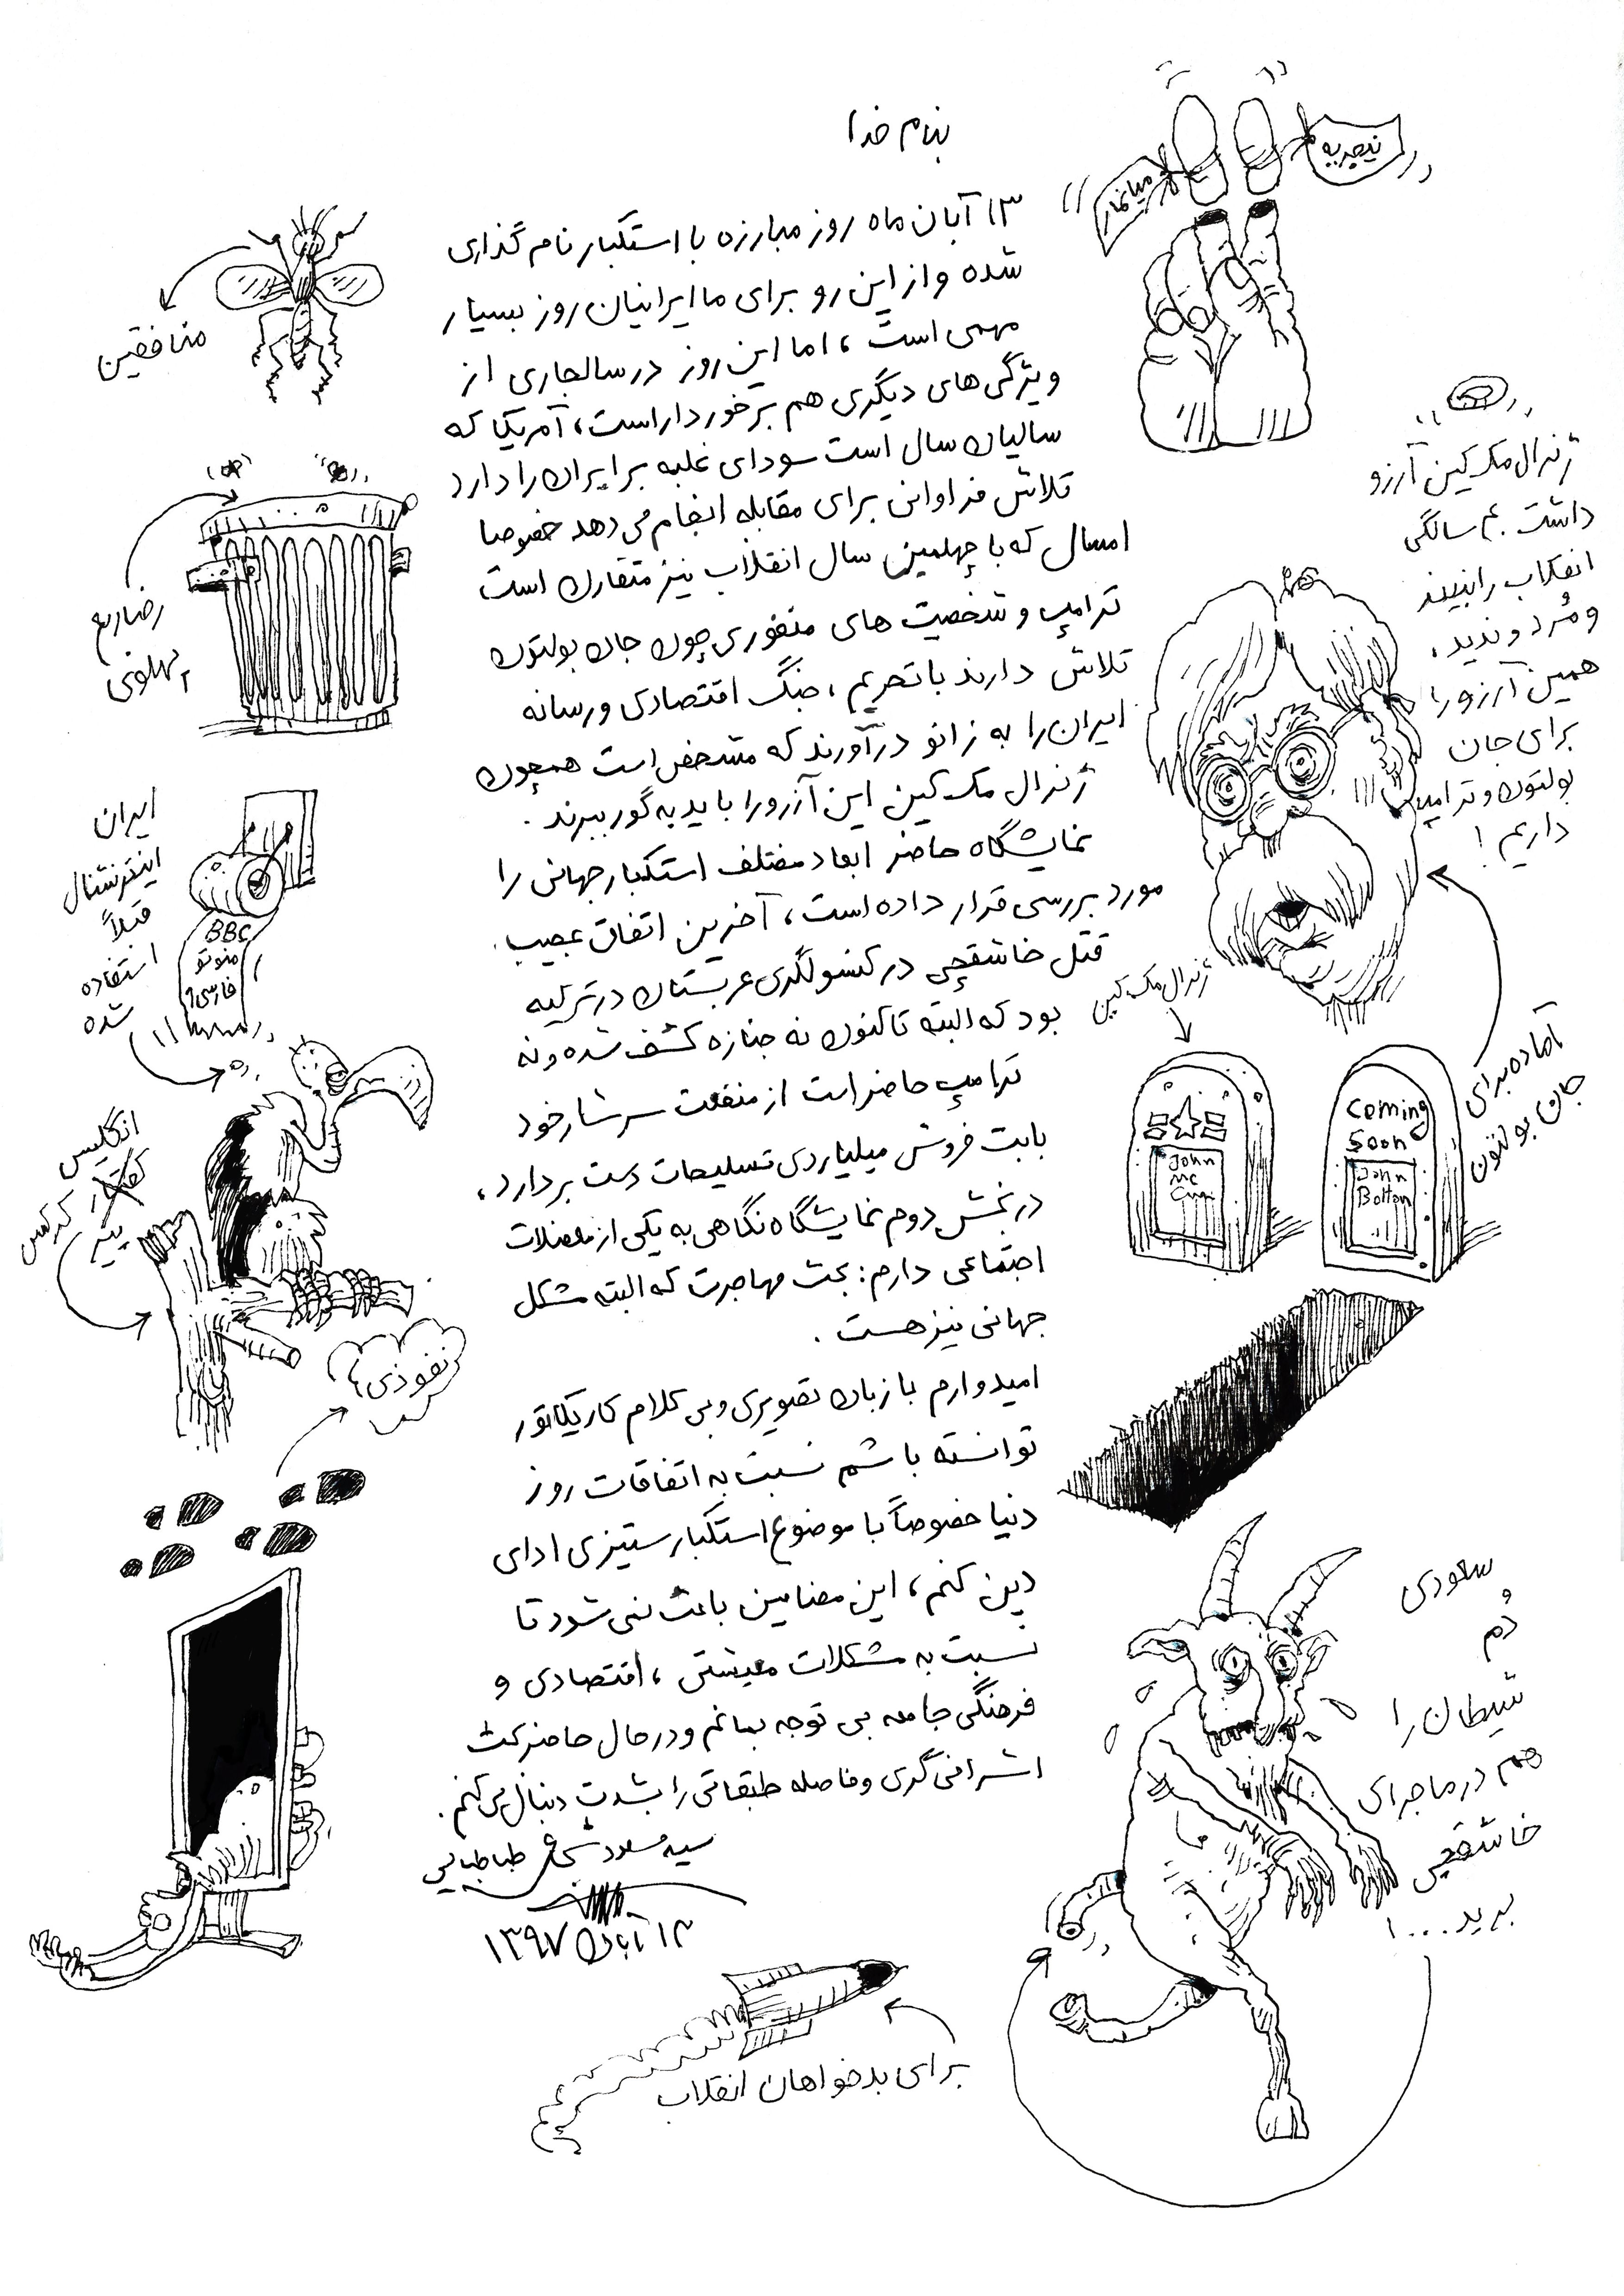 بنام خدا
۱۳ آبان ماه روز مبارزه با استکبار نام گذاری
شده و از این رو برای ما ایرانیان روز بسیار
مهمی است، اما این روز در سالجاری از
ویژگی های دیگری هم برخوردار است، آمریکا که
سالیان سال است سودای غلبه بر ایران را دارد
تلاش فراوانی برای مقابله انجام می دهد خصوصا
امسال که با چهلمین سال انقلاب نیز متقارن است
ترامپ و شخصیت های منفوری چون جان بولتون
تلاش دارند با تحریم، جنگ اقتصادی و رسانه
ایران را به زانو درآورند که مشخص است همچون
ژنرال مک کین این آرزو را باید به گور ببرند.
نمایشگاه حاضر ابعاد مختلف استکبار جهانی را
مورد بررسی قرار داده است، آخرین اتفاق عجیب
قتل خاشقچی در کنسولگری عربستان در ترکیه
بود که البته تاکنون نه جنازه کشف شده و نه
ترامپ حاضر است از منفعت سرشار خود
بابت فروش میلیاردی تسلیحات دست بردارد،
در بخش دوم نمایشگاه نگاهی به یکی از معضلات
اجتماعی دارم: بحث مهاجرت که البته مشکل
جهانی نیز هست.
امیدوارم با زبان تصویری و بی کلام کاریکاتور
توانسته باشم نسبت به اتفاقات روز
دنیا خصوصاً با موضوع استکبار ستیزی ادای
دین کنم، این مضامین باعث نمی شود تا
نسبت به مشکلات معیشتی، اقتصادی و
فرهنگی جامعه بی توجه بمانم و در حال حاضر بحث
اشرافی گری و فاصله طبقاتی را بشدت دنبال می کنم.
سید مسعود شجاعی طباطبایی
۱۳ آبان ۱۳۹۷
برای بدخواهان انقلاب
میانمار
نیجریه
ژنرال مک کین آرزو
داشت ۴۰ سالگی
انقلاب را نبیند
و مُرد و ندید،
همین آرزو را
برای جان
بولتون و ترامپ
داریم!
ژنرال مک کین
John
Mc
آماده برای
جان بولتون
Coming
Soon
John
Bolton
سعودی
دُم
شیطان را
هم در ماجرای
خاشقچی
برید...!
منافقین
رضا ربع
پهلوی
ایران
اینترنشنال
قبلاً
استفاده
شده
BBC
منوتو
فارسی۱
انگلیس
کفتار
پیر کرکس
نفوذی!